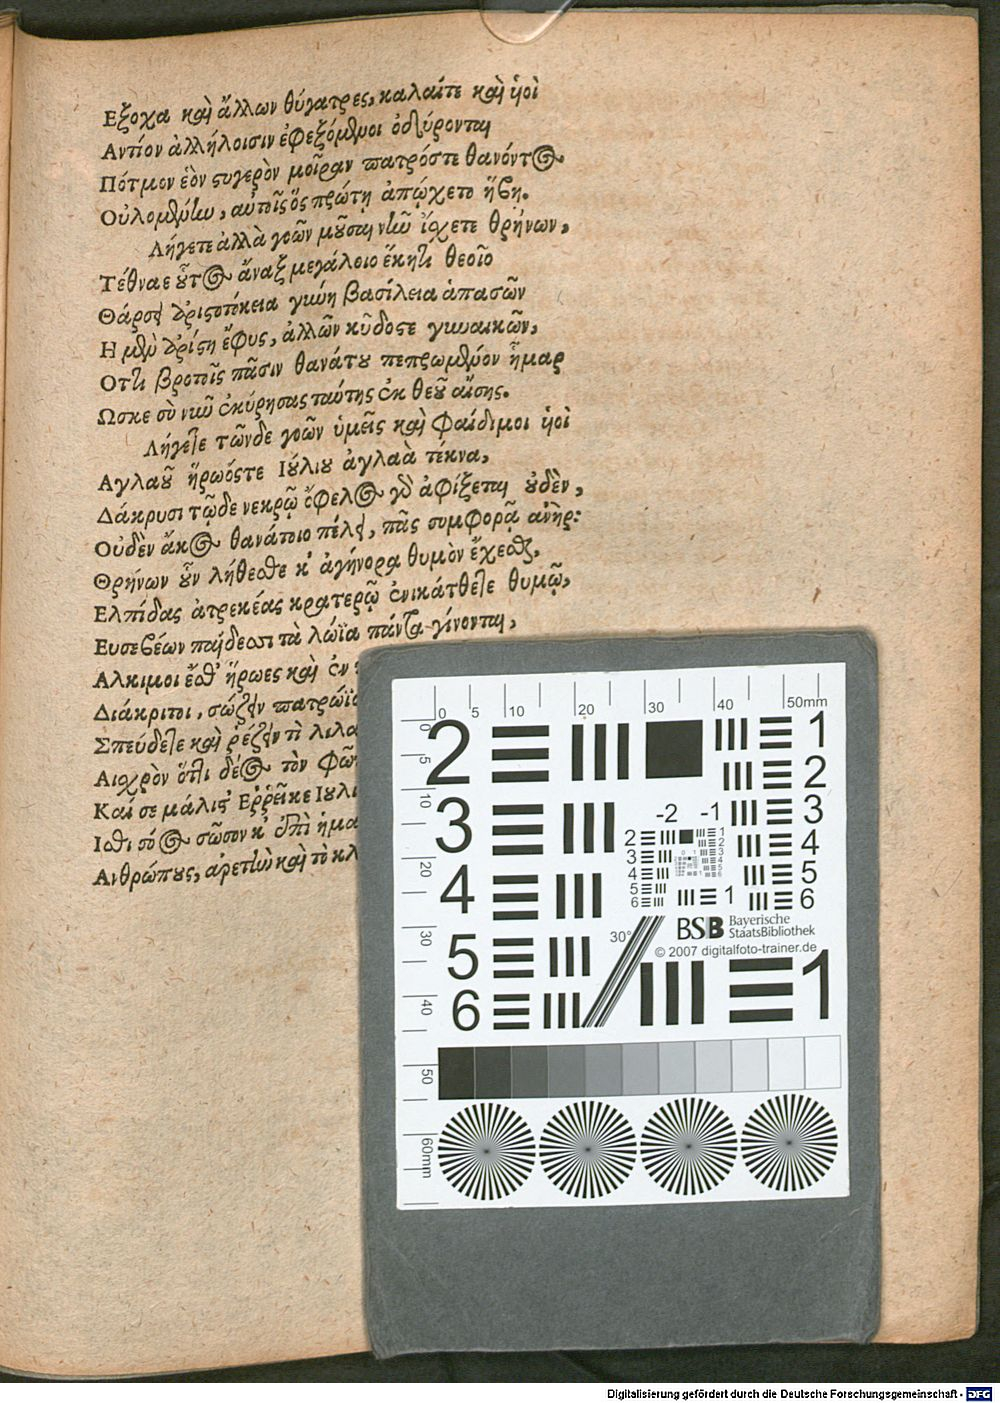 Εξοχα καὶ ἄλλων θύγατρες, καλαίτε καὶ ἡοὶ
Αντίον ἀλλήλοισιν ἐφεξόμενοι ὀδύρονται
Πότμον ἑὸν στυγερὸν μοῖραν πατρόστε θανόντος
Οὐλομένην, αὐτοῖς ὃς πρώτη ἀπῴχετο ἥβη.
Λήγετε ἀλλὰ γοῶν μοῦσαι νῦν ἴσχετε θρήνων,
Τέθναε οὗτος ἄναξ μεγάλοιο ἕκητι θεοῖο
Θάρσει ἀριστοτόκεια γυνή βασίλεια ἁπασῶν
Η μὲν ἀρίστη ἔφυς, ἀλλῶν κῦδοστε γυναικῶν,
Οττι βροτοῖς πᾶσιν θανάτου πεπρωμένον ἦμαρ
Ωσκε σὺ νῦν ἐκύρησας ταύτης ἐκ θεοῦ αἴσης.
Λήγετε τῶνδε γοῶν ὑμεῖς καὶ Φαίδιμοι ἡοὶ
Αγλαοῦ ἥρωόστε Ιούλιου ἀγλαὰ τέκνα,
Δάκρυσι τῷδε νεκρῷ ὄφελος γὰρ ἀφίξεται οὐδὲν,
Οὐδὲν ἄκος θανάτοιο πέλει, πᾶς συμφορᾷ ἀνὴρ:
Θρήνων οὖν λήθεσθε κ' ἀγήνορα θυμὸν ἔχεσθαι,
Ελπίδας ἀτρεκέας κρατερῷ ἐνικάτθετε θυμῷ,
Ευσεβέων παίδεσσι τὰ λώϊα πάντα γίνονται,
Αλκιμοι ἔσθ' ἥρωες καὶ ἐν
Διάκριτοι, σώζειν πατρώϊα
Σπεύδετε καὶ ῥέζειν τὶ λιλα
Αισχρὸν ὅττι δέος τὸν φῶτ
Καί σε μάλιστ' Ερρεῖκε Ιουλι
Ισθι σόος σῶσον κ' ἐπὶ ἡμα
Ανθρώπους, ἀρετὴν καὶ τὸ κλ
0 5 10 20 30 40 50mm
0 5 10 20 30 40 50 60mm
2 3 4 5 6
1 2 3 4 5 6
-2 -1
2 3 4 5 6
1
30°
BSB Bayerische
StaatsBibliothek
© 2007 digitalfoto-trainer.de
1
Digitalisierung gefördert durch die Deutsche Forschungsgemeinschaft - DFG